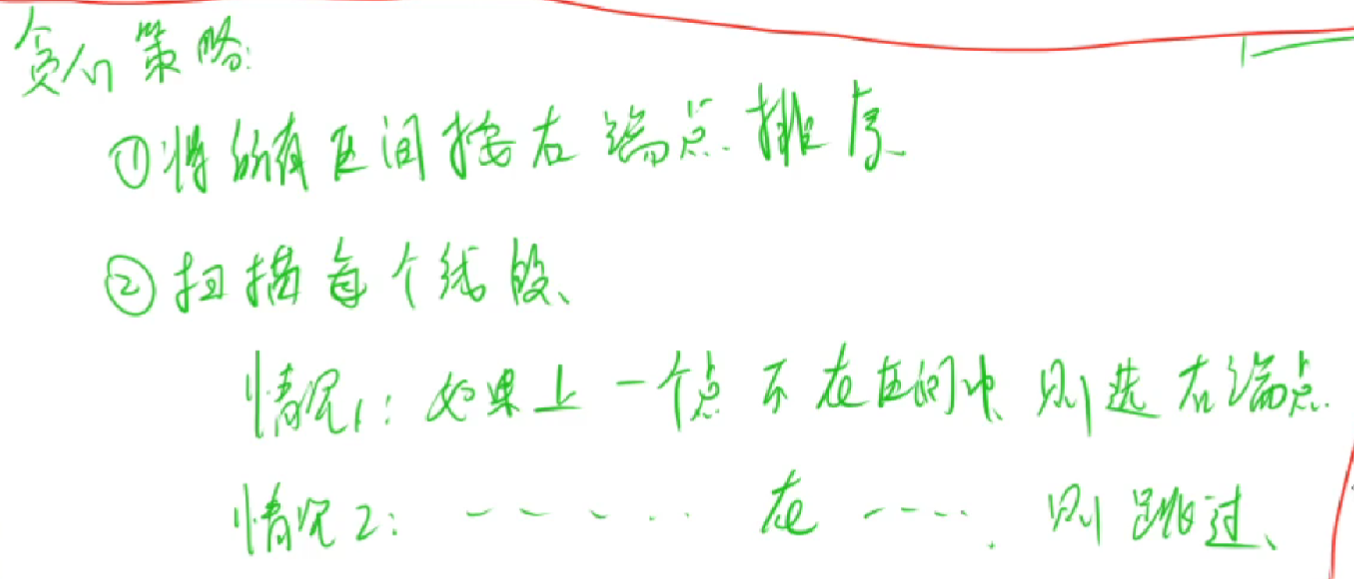 贪心策略:
①将所有区间按右端点.排序
②扫描每个线段、
情况1:如果上一个点不在区间中 则选右端点.
情况2: ----·· 在 ----. 则跳过、